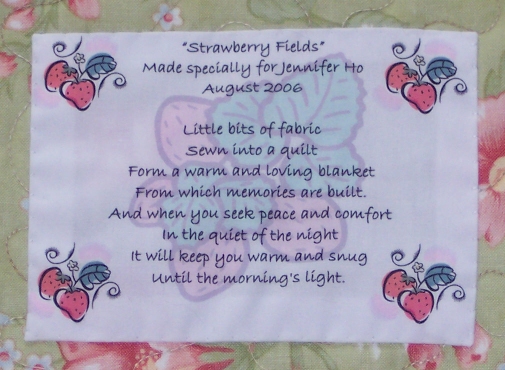 "Strawberry Fields"
Made specially for Jennifer Ho
August 2006
Little bits of fabric
Sewn into a quilt
Form a warm and loving blanket
From which memories are built.
And when you seek peace and comfort
In the quiet of the night
It will keep you warm and snug
Until the morning's light.